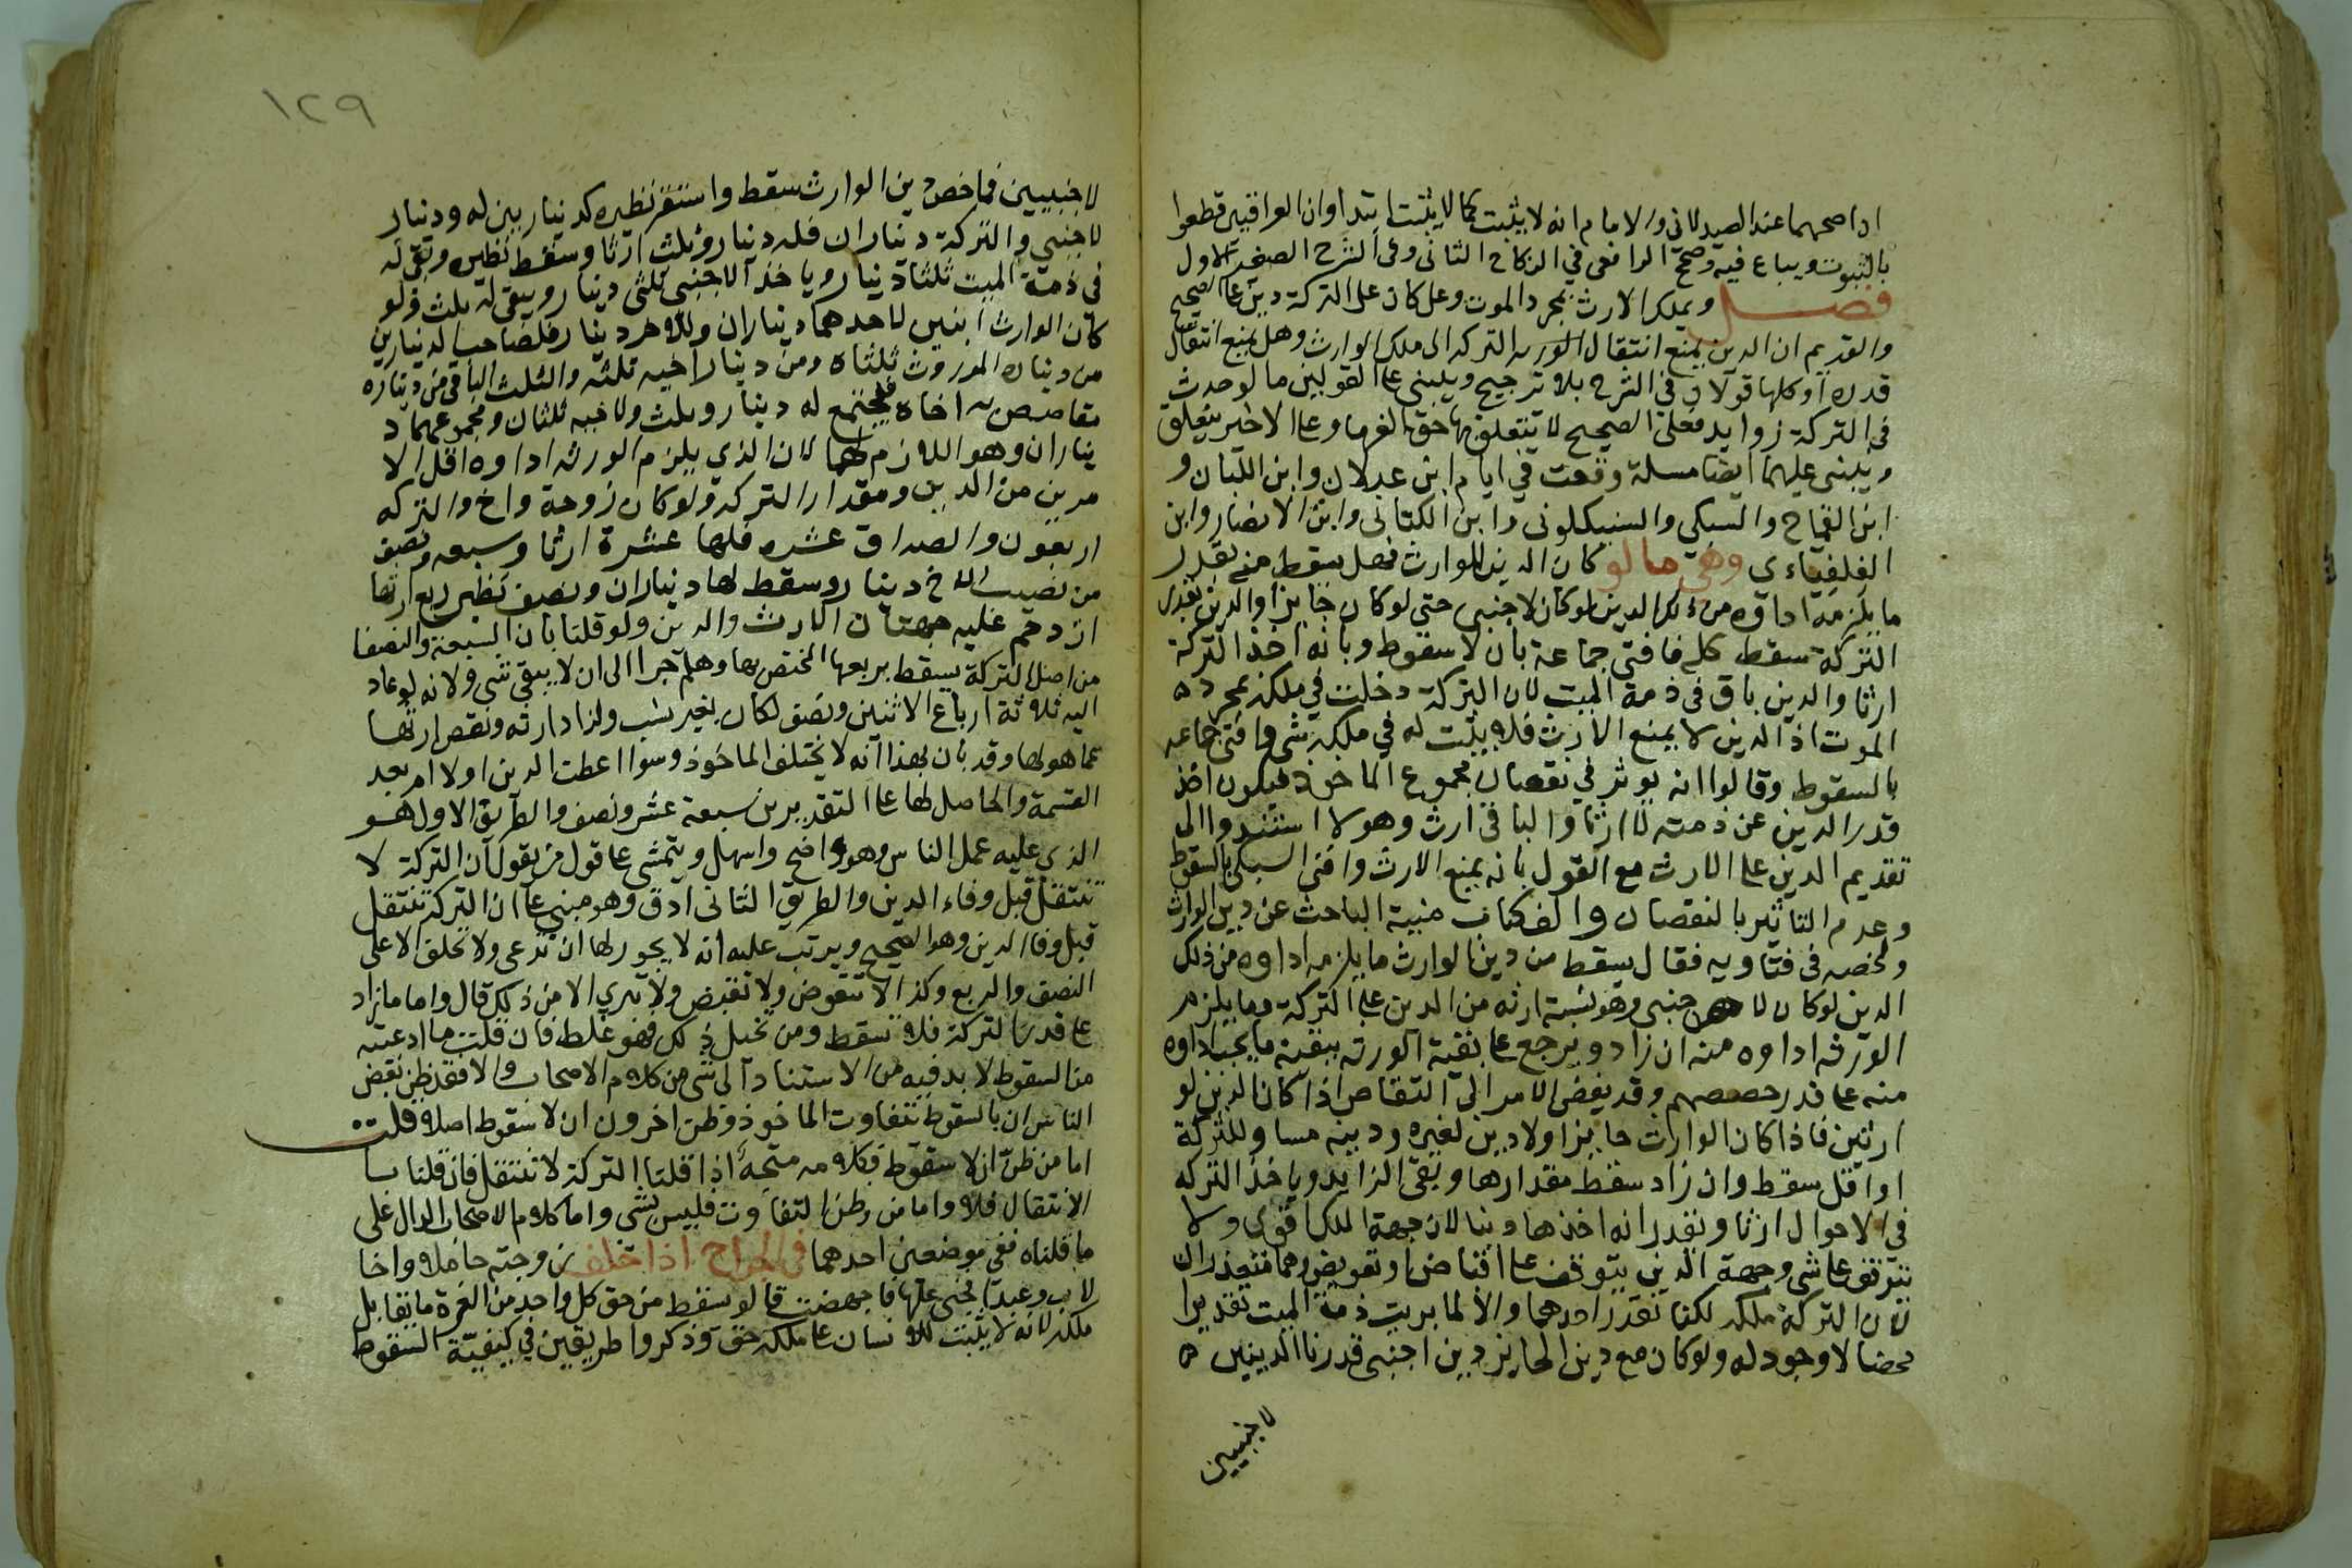 اذا صحهما عند الصيدلاني والامام انه لا يثبت كما لا يثبت ابتدا وان العراقيين قطعوا
بالثبوت ويباع فيه وصحح الرافعي في النكاح الثاني وفي الشرح الصغير الاول
فصل ويملك الارث بمجرد الموت وعل كان على التركة دين على الصحيح
والقديم ان الدين يمنع انتقال التركه الى ملك الوارث وهل يمنع انتقال
قدره او كلها قولان في الشرح بلا ترجيح ويبنى على القولين ما لو حدث
في التركة زوايد فعلى الصحيح لا يتعلق بها حق الغرما وعلى الاخير يتعلق
ويبنى عليهما ايضا مسلة وقعت في ايام ابن عدلان وابن اللبان و
ابن القماح والسبكي والسنبكلوني وابن الكتاني وابن الانصار وابن
الفلفياءى وهي ما لو كان الدين للوارث فهل يسقط منه بقدر
ما يلزمه اداوه من ذلك الدين لو كان لاجنبي حتى لو كان حايزا والدين بقدر
التركة سقط كله فافتى جماعة بان لا سقوط وبانه اخذ التركة
ارثا والدين باق في ذمة الميت لان التركة دخلت في ملكه بمجرده
الموت اذ الدين لا يمنع الارث فلا يثبت له في ملكه شي وافتى جماعه
بالسقوط وقالوا انه يوثر في نقصان مجموع الماخوذ فيكون اخذ
قدر الدين عن ذمته لا ارثا والباقي ارث وهولا استندوا الى
تقديم الدين على الارث مع القول بانه يمنع الارث وافتى السبكي بالسقوط
وعدم التاثير بالنقصان والف كتاب منية الباحث عن دين الوارث
ولخصه في فتاويه فقال يسقط من دين الوارث ما يلزمه اداوه من ذلك
الدين لو كان لاجنبي وهو نسبة ارثه من الدين على التركة وما يلزم
الورثه اداوه منه ان زاد ويرجع على بقية الورثه ببقية ما يجب اداوه
منه على قدر حصصهم وقد يفضي الامر الى التقاص اذا كان الدين لو
ارثين فاذا كان الوارث حايزا ولا دين لغيره ودينه مساو للتركة
او اقل سقط وان زاد سقط مقدارها وبقى الزايد وياخذ التركه
في الاحوال ارثا ونقدر انه اخذها دينا لان جهة الملك اقوى ولا
تتوقف على شي وجهة الدين تتوقف على اقتاض او تعويض وهما متعذران
لان التركة ملكه لكنا نقدر احدهما والا لما بريت ذمة الميت تقديرا
محضا لا وجود له ولو كان مع دين الحايز دين اجنبي قدرنا الدينين ه
لاجنبيين
١٢٩
لاجنبيين فما خص دين الوارث سقط واستقر نظيره كدينارين له ودينار
لاجنبي والتركة ديناران فله دينار وثلث ارثا وسقط نظيره وبقى له
في ذمة الميت ثلثا دينار وياخذ الاجنبي ثلثى دينار ويبقى له ثلث ولو
كان الوارث ابنين لاحدهما ديناران وللاخر دينار فلصاحب الدينارين
من ديناره الموروث ثلثاه ومن دينار اخيه ثلثه والثلث الباقي من ديناره
تقاصص به اخاه فيجتمع له دينار وثلث ولاخيه ثلثان ومجموعهما د
يناران وهو اللازم لهما لان الذي يلزم الورثه اداوه اقل الا
مرين من الدين ومقدار التركه ولو كان زوجة واخ والتركه
اربعون والصداق عشره فلها عشرة ارثا وسبعه ونصف
من نصيب الاخ دينار وسقط لها ديناران ونصف نظير ربع ارثها
ازدحم عليه جهتان الارث والدين ولو قلنا بان السبعة والنصفا
من اصل التركة يسقط بربعها المختص بها وهلم جرا الى ان لا يبقى شي ولانه لو عاد
اليه ثلاثة ارباع الاثنين ونصف لكان بغير سبب ولزاد ارثه ونقص ارثها
عما هو لها وقد بان بهذا انه لا يختلف الماخوذ وسوا اعطت الدين اولا ام بعد
القسمة والحاصل لها على التقديرين سبعة عشر ونصف والطريق الاول هو
الذي عليه عمل الناس وهو واضح واسهل ويتمشى على قول من يقول ان التركة لا
تنتقل قبل وفاء الدين والطريق الثاني ادق وهو مبني على ان التركه تنتقل
قبل وفا الدين وهو الصحيح ويرتب عليه انه لا يجوز لها ان تدعى ولا تحلف الا على
النصف والربع وكذا لا تتعوض ولا تقبض ولا تبري الا من ذلك قال واما ما زاد
على قدر التركة فلا تسقط ومن تخيل ذلك فهو غلط فان قلت ما ادعيته
من السقوط لا بد فيه من الاستناد الى شي من كلام الاصحاب والا فقد ظن بعض
الناس ان بالسقوط تتفاوت الماخوذ وظن اخرون ان لا سقوط اصلا قلت
اما من ظن ان لا سقوط فكلامه متجه اذا قلنا التركة لا تنتقل فان قلنا با
الانتقال فلا واما من وظن التفاوت فليس بشي واما كلام الاصحاب الدال على
ما قلناه ففي موضعين احدهما في الجراح اذا خلف زوجته حاملا واخا
لاب وعبدا فجنى عليها فاجهضت قالو سقط من حق كل واحد من الغرة ما يقابل
ملكه لانه لا يثبت للانسان على ملكه حق وذكروا طريقين في كيفية السقوط